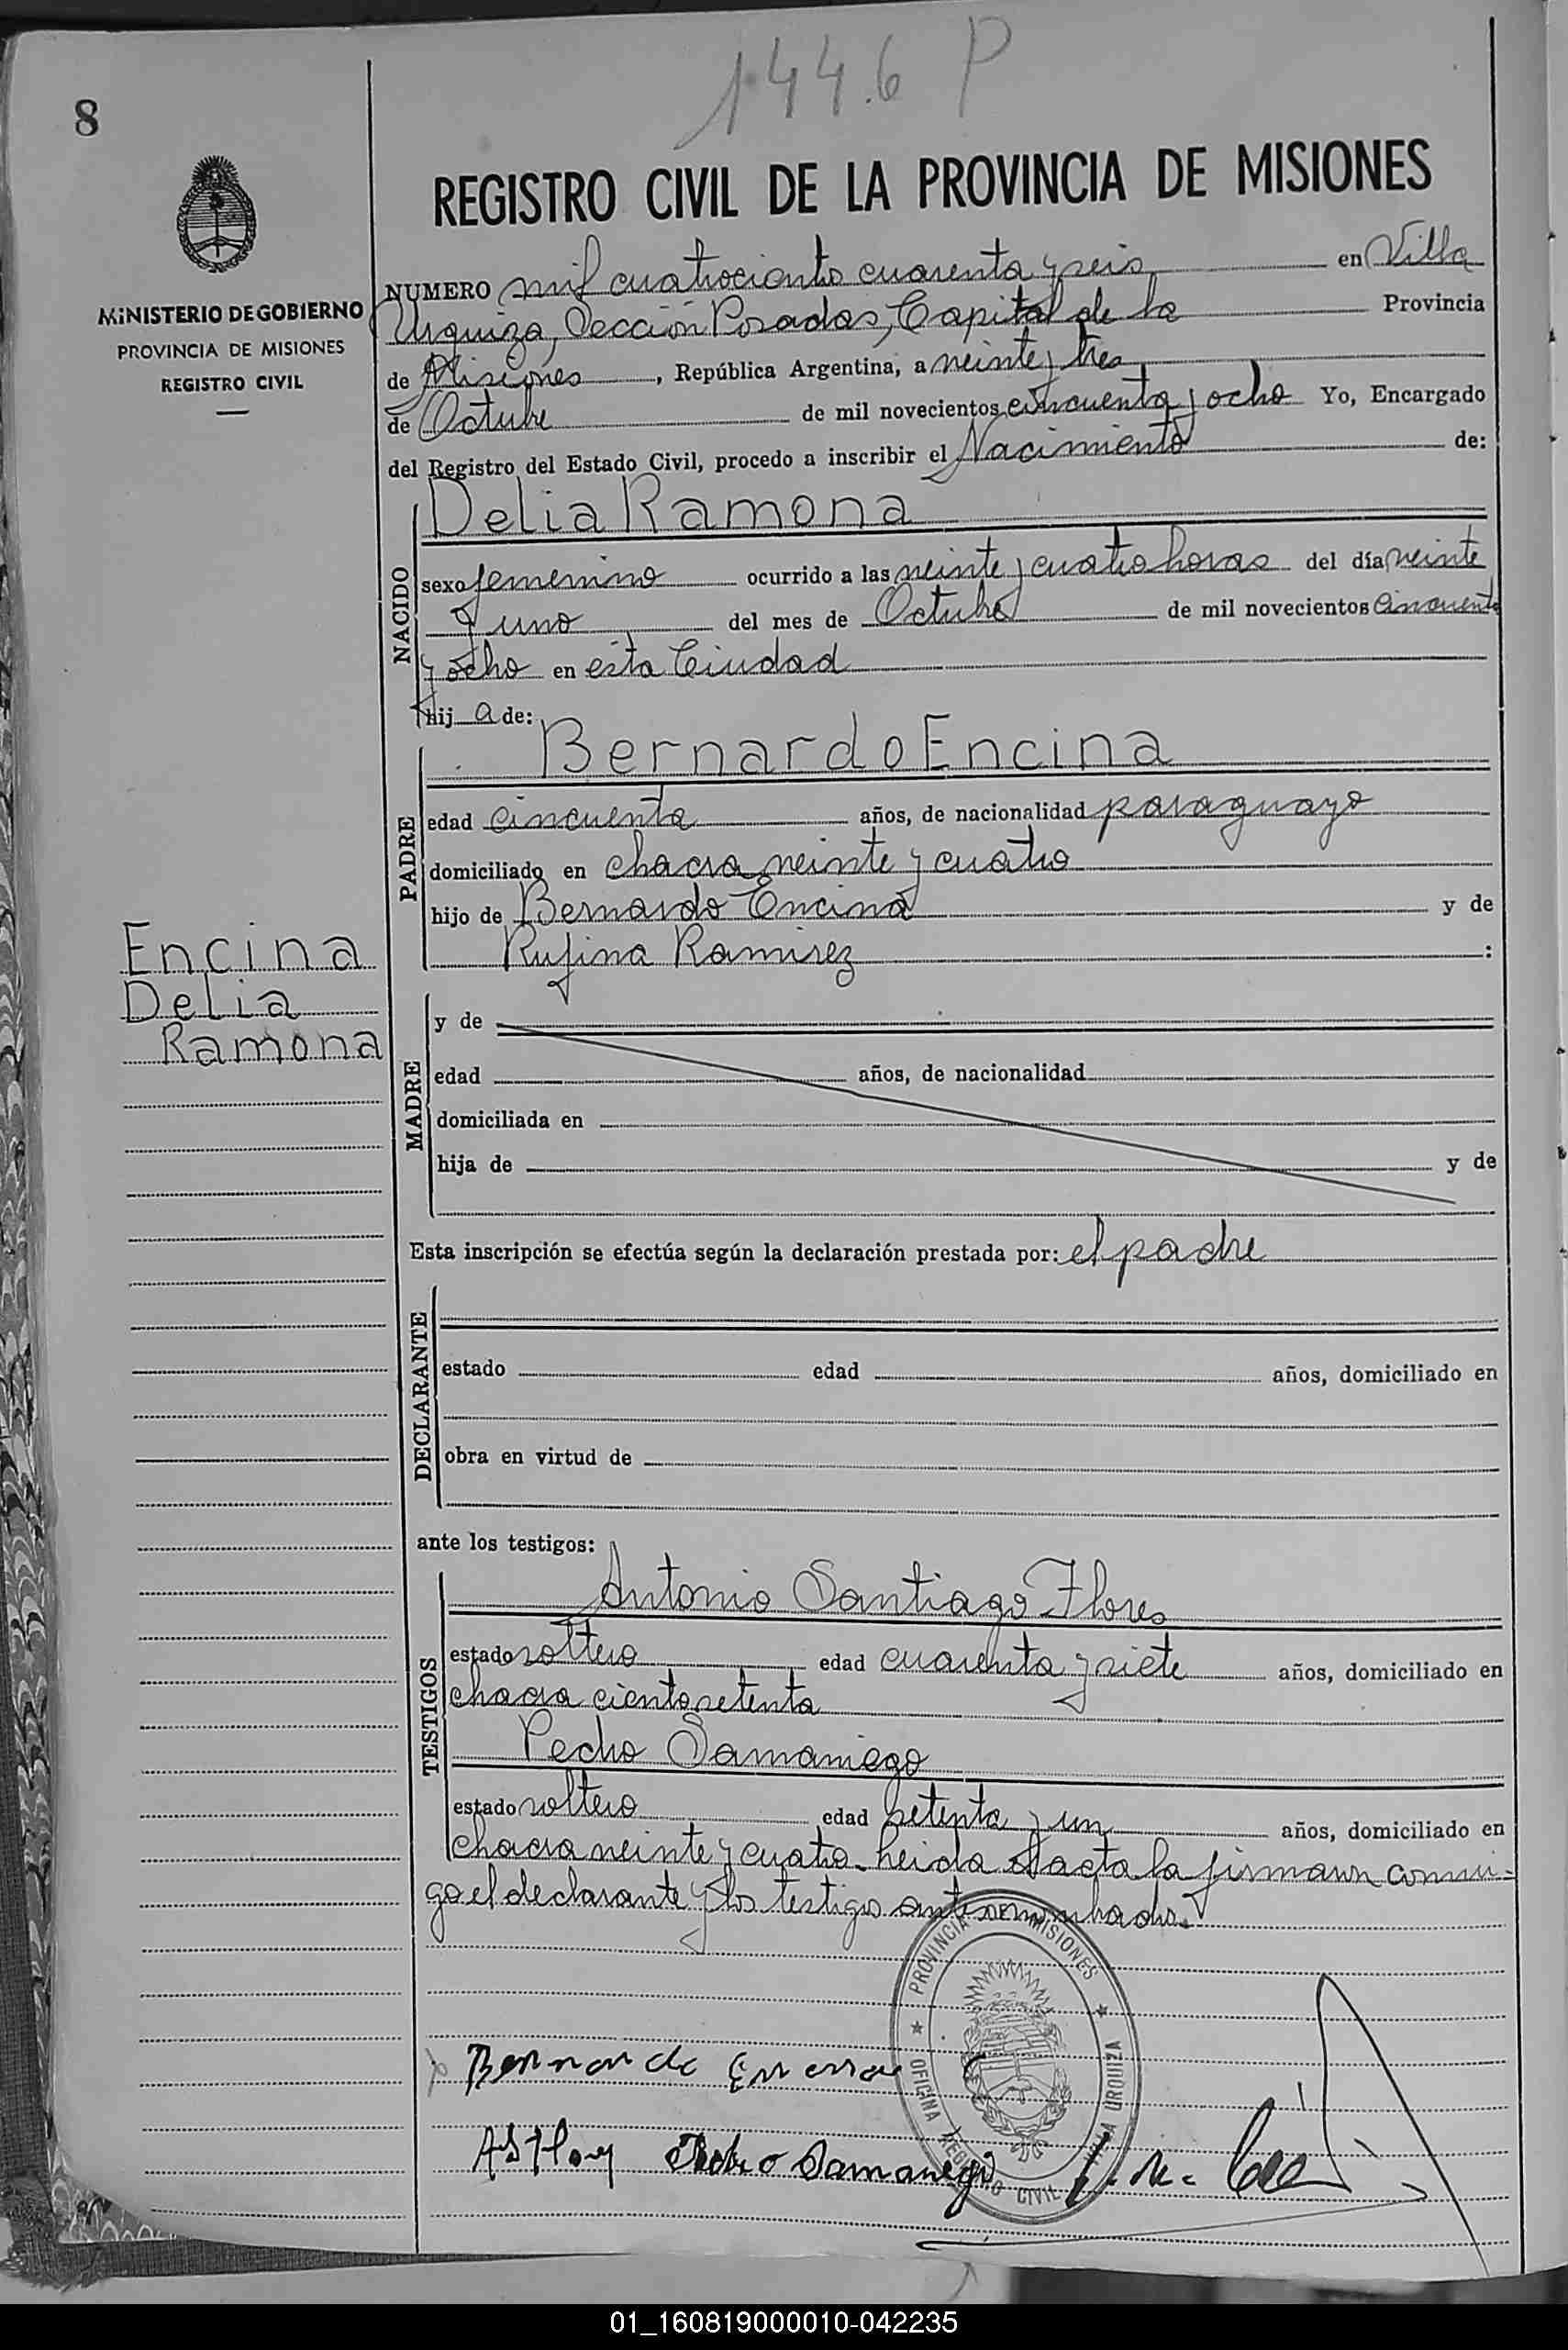 1446 P
8
REGISTRO CIVIL DE LA PROVINCIA DE MISIONES
MINISTERIO DE GOBIERNO
PROVINCIA DE MISIONES
REGISTRO CIVIL
NUMERO mil cuatrociento cuarenta y seis en Villa
Urquiza, Sección Posadas, Capital de la Provincia
de Misiones, República Argentina, a veinte y tres
de Octubre de mil novecientos cincuenta y ocho Yo, Encargado
del Registro del Estado Civil, procedo a inscribir el Nacimiento de:
NACIDO
Delia Ramona
sexo femenino ocurrido a las veinte y cuatro horas del día veinte
y uno del mes de Octubre de mil novecientos cincuenta
y ocho en esta Ciudad
hij a de:
PADRE
Bernardo Encina
edad cincuenta años, de nacionalidad paraguayo
domiciliado en chacra veinte y cuatro
hijo de Bernardo Encina y de
Rufina Ramirez :
Encina
Delia
Ramona
MADRE
y de
edad años, de nacionalidad
domiciliada en
hija de y de
Esta inscripción se efectúa según la declaración prestada por: el padre
DECLARANTE
estado edad años, domiciliado en
obra en virtud de
ante los testigos:
TESTIGOS
Antonio Santiago Flores
estado soltero edad cuarenta y siete años, domiciliado en
chacra ciento setenta
Pedro Samaniego
estado soltero edad setenta y un años, domiciliado en
chacra veinte y cuatro. Leida el acta la firmaron conmi-
go el declarante y los testigos
PROVINCIA DE MISIONES
OFICINA REGISTRO CIVIL VILLA URQUIZA
Bernardo
ASFlores Pedro Samaniego
01_160819000010-042235